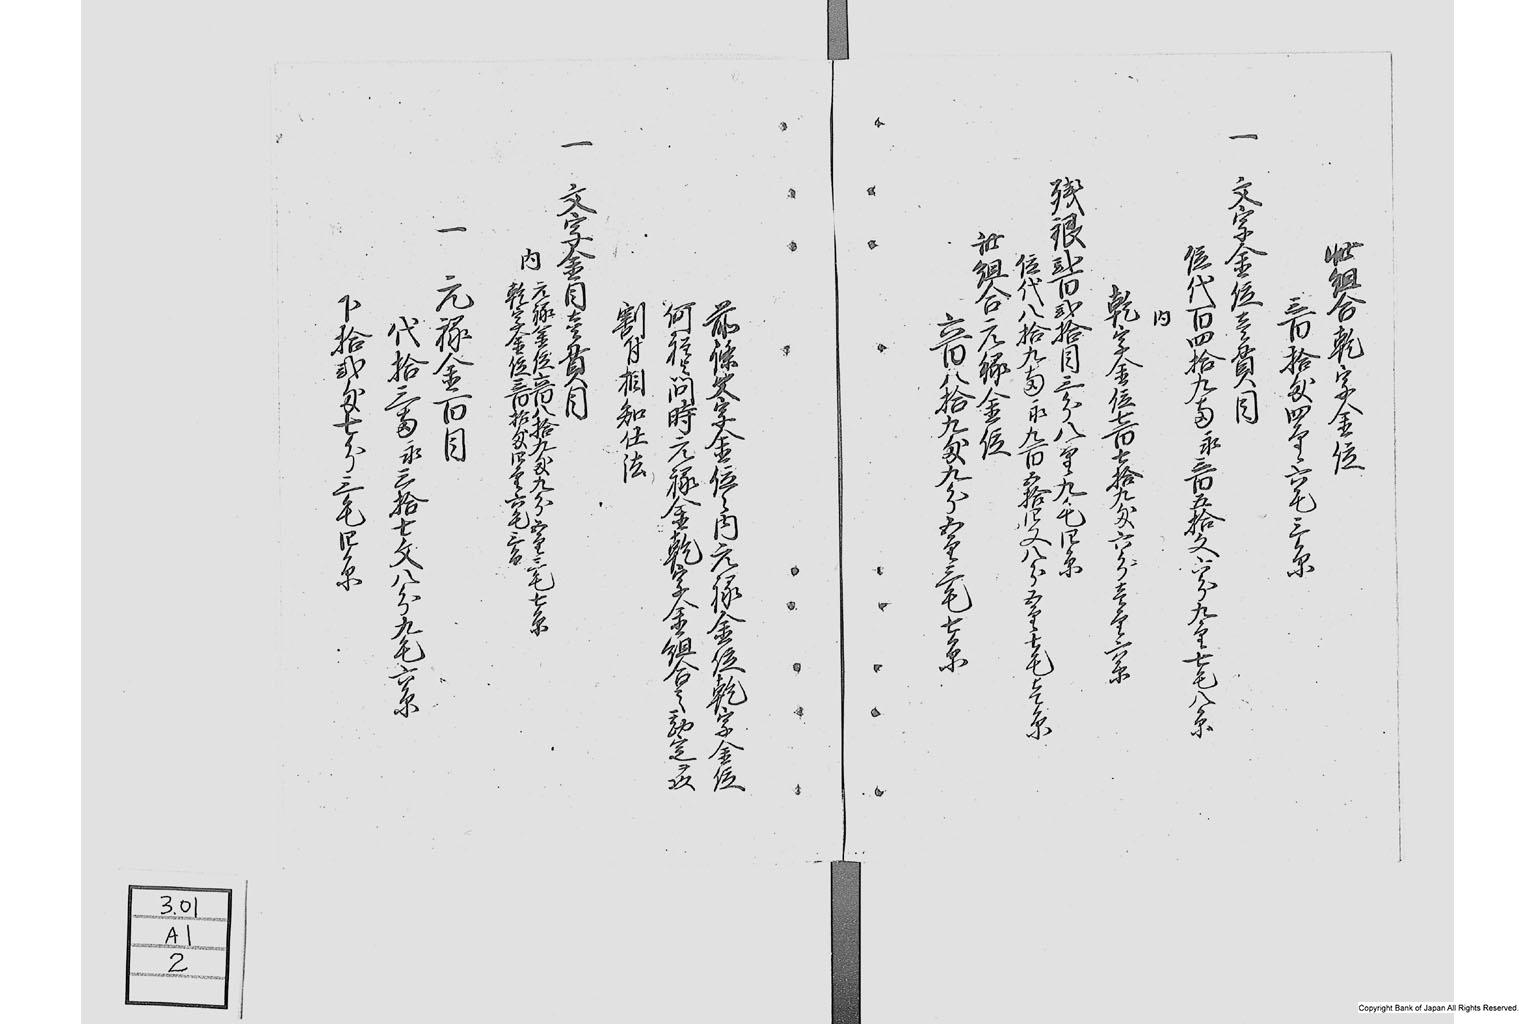 此組合乾字金位
三百拾匁四厘六毛三糸
一 文字金位壱貫目
位代百四拾九両永三百五拾文六分九厘七毛八糸
内
乾字金位七百七拾九匁六分壱厘六糸
残銀弐百弐拾目三分八厘九毛四糸
位代八拾九両永九百五拾四文八分五厘七毛七糸
此組合元禄金位
六百八拾九匁九分五厘三毛七糸
前條文字金位之内元禄金位乾字金位
何程与問時元禄金乾字金組合之勘定
割付相知仕法
一 文字金目壱貫目
内 元禄金位六百八拾九匁九分五厘三毛七糸
乾字金位三百拾匁四厘六毛三糸
一 元禄金百目
代拾三両永三拾七文八分九毛六糸
下拾弐匁七分三毛四糸
3.01
A1
2
Copyright Bank of Japan All Rights Reserved.